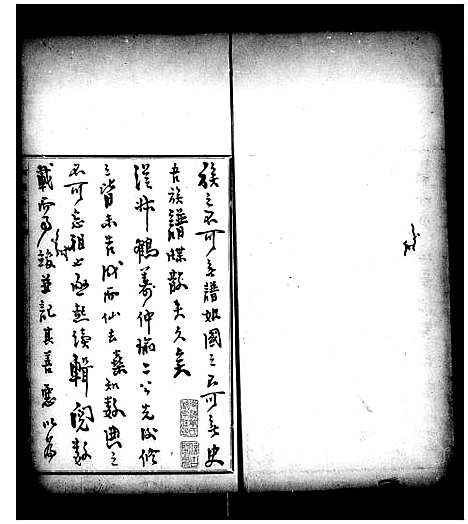 族之不可無譜如國之不可無史
吾族譜牒散失久矣
從叔鶴壽仲瑜二公先後修
之皆未告成而仙去 知數典之
不可忘祖也亟起續輯閱數
載而事竣並記其善惡以為